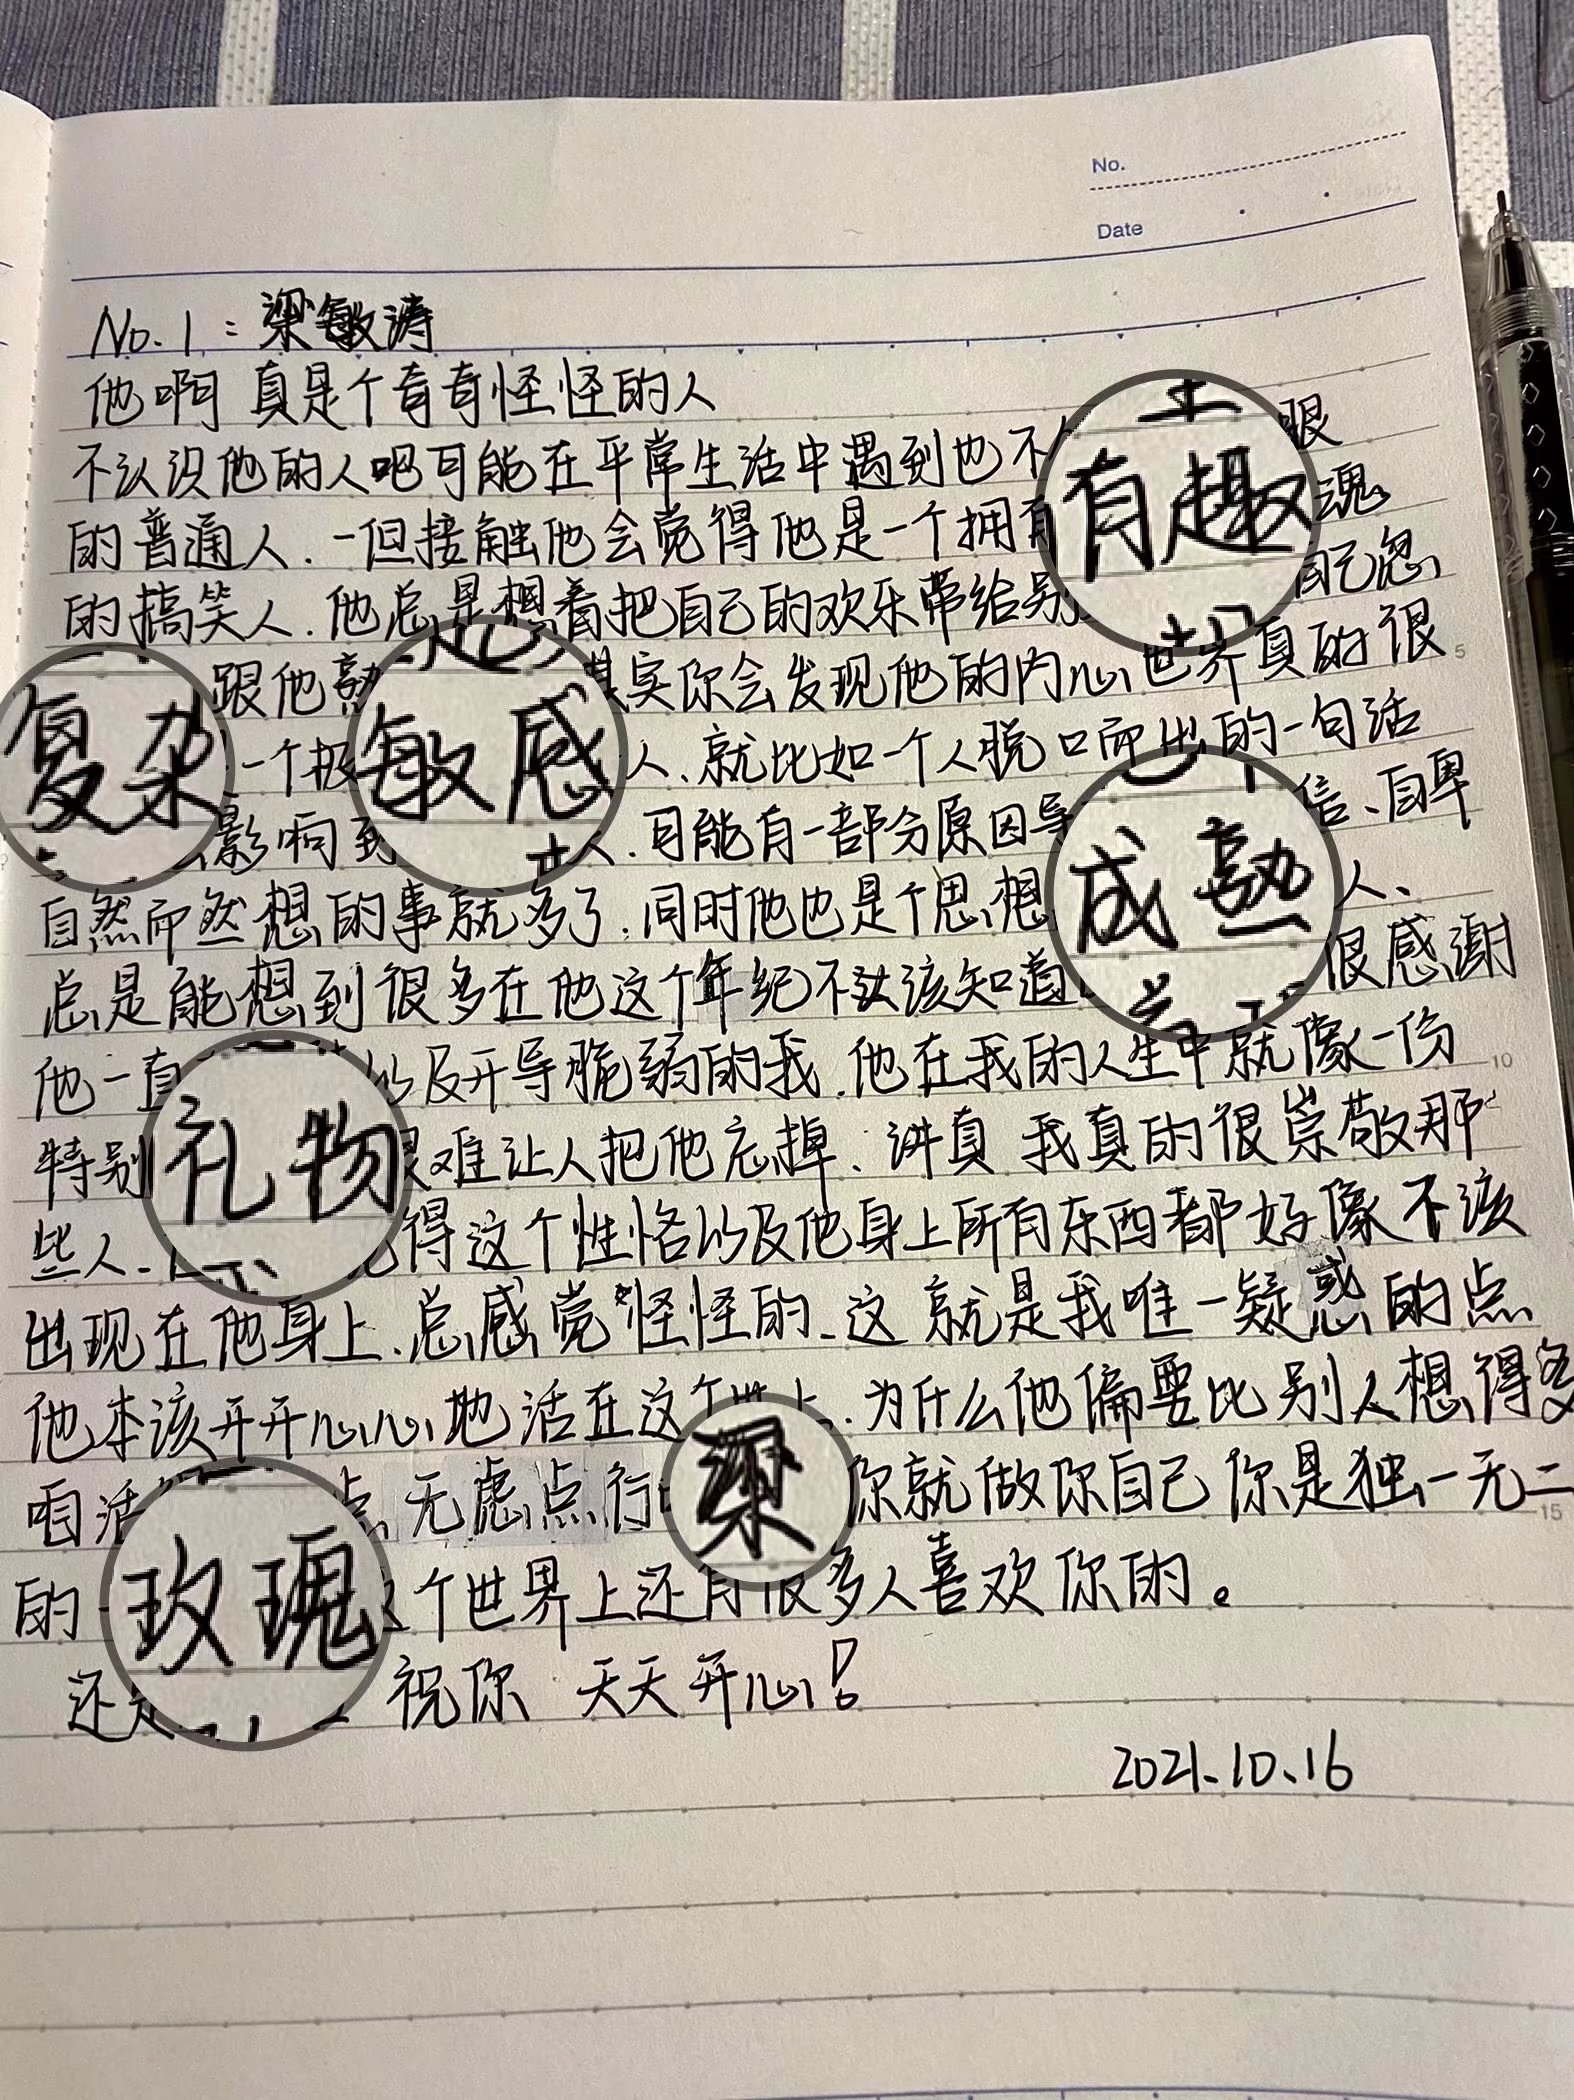 No.
Date
No.1:梁敏涛
他啊 真是个奇奇怪怪的人
不认识他的人吧可能在平常生活中遇到也不 眼
的普通人.一但接触他会觉得他是一个拥有有趣 魂
的搞笑人.他总是想着把自己的欢乐带给别 自己忽
跟他熟 其实你会发现他的内心世界真的很
复杂 一个极 敏感 人、就比如一个人脱口而出的一句话
影响到 人.可能有一部分原因导 信、自卑
自然而然想的事就多了.同时他也是个思想 成熟 人、
总是能想到很多在他这个年纪不该知道 很感谢
他一直 以及开导脆弱的我.他在我的人生中就像一份
特别 礼物 很难让人把他忘掉、讲真 我真的很崇敬那
些人、 得这个性格以及他身上所有东西都好像不该
出现在他身上、总感觉怪怪的、这就是我唯一疑惑的点
他本该开开心心地活在这个世上.为什么他偏要比别人想得多
咱活 点 无虑点行 梁 你就做你自己 你是独一无二
的 玫瑰 个世界上还有很多人喜欢你的。
还是 祝你 天天开心!
2021.10.16
5
10
15